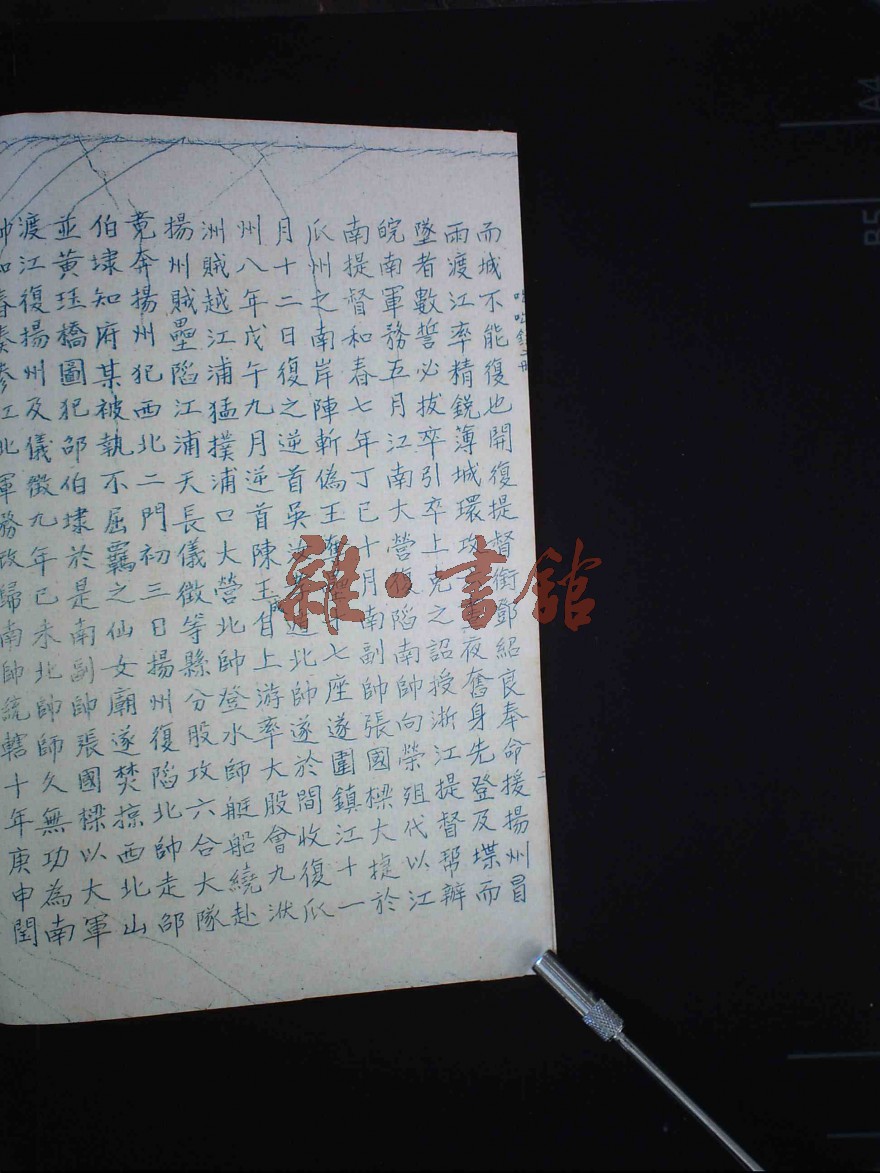 而城不能復也開復提督銜鄧紹良奉命援揚州冒
雨渡江率精銳薄城環攻夜奮身先登及堞而
墜者數誓必拔卒引卒上克之詔授浙江提督帮辦
皖南軍務五月江南大營復陷南帥向榮殂代以江
南提督和春七年丁巳十月南副帥張國樑大捷於
瓜州之南岸陣斬偽王七座遂圍鎮江十一
月十二日復之逆首吳遁北帥遂於間收復瓜
州八年戊午九月逆首陳玉成自上游率大股會九洑
洲賊越江浦猛撲浦口大營北帥登水師艇船繞赴
揚州賊壘陷江浦天長儀徵等縣分股攻六合大隊
竟奔揚州犯西北二門初三日揚州復陷北帥走邵
伯埭知府某被執不屈羈之仙女廟遂焚掠西北山
並黃玨橋圖犯邵伯埭於是南副帥張國樑以大軍
渡江復揚州及儀徵九年己未北帥師久無功為南
帥和春奏參江北軍務改歸南帥統轄十年庚申閏
雜·書館